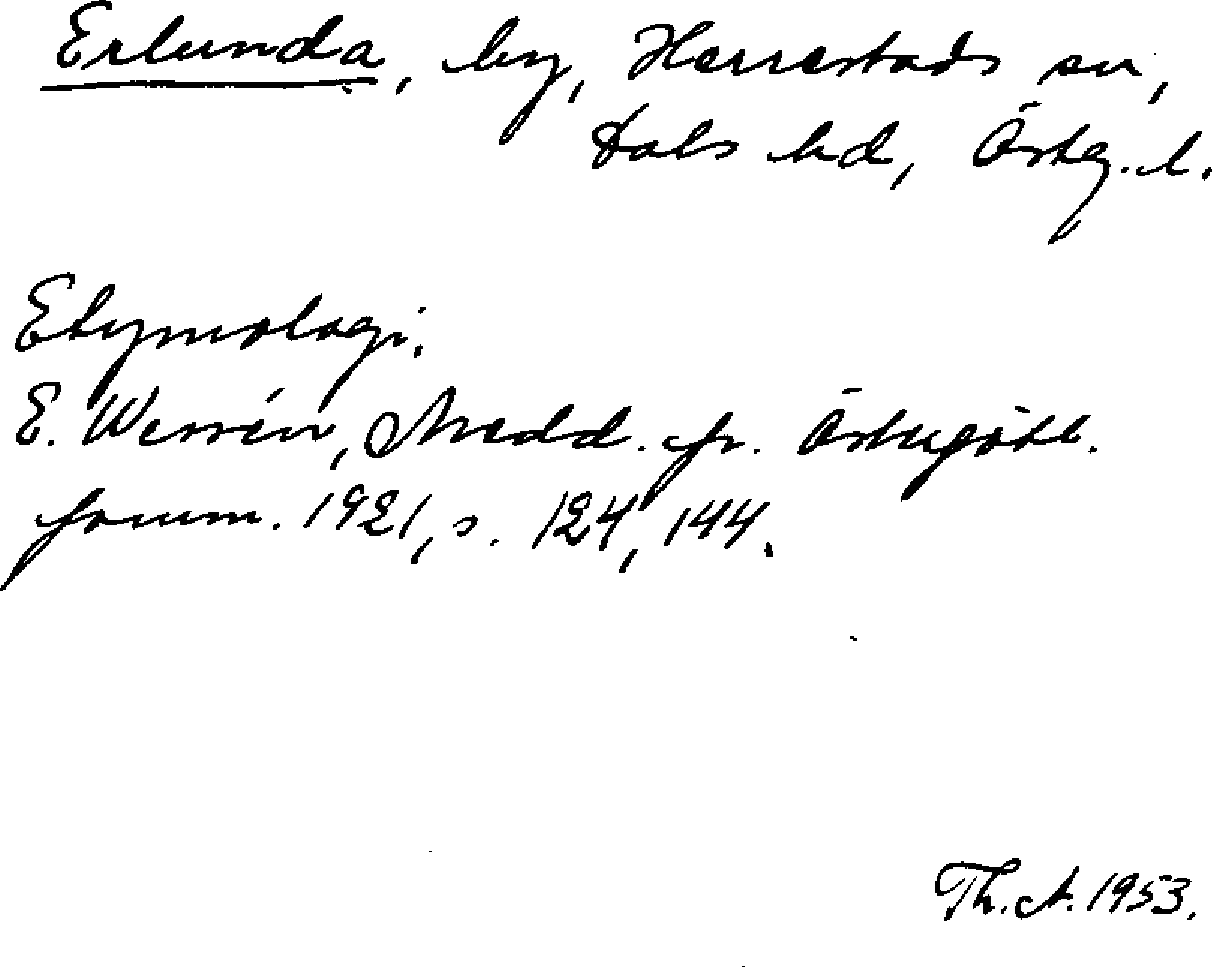 Erlunda, by, Herrestads sn,
Dals hd, Östg. l.
Etymologi.
E. Wessén, Medd. fr. Östergötl.
fornm. 1921, s. 124, 144.
Th. A. 1953.